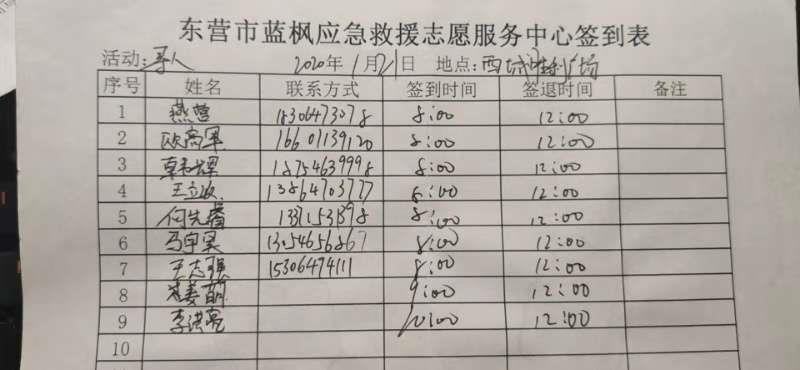 东营市蓝枫应急救援志愿服务中心签到表
活动：寻人 2020年1月21日 地点：西城 广场
序号 姓名 联系方式 签到时间 签退时间 备注
1 燕营 8:00 12:00
2 欧高军 16601139120 8:00 12:00
3 18754639998 8:00 12:00
4 王立波 13864703777 8:00 12:00
5 何先春 8:00 12:00
6 马宇昊 13054656867 8:00 12:00
7 王志强 15306474111 8:00 12:00
8 9:00 12:00
9 李洪亮 10:00 12:00
10